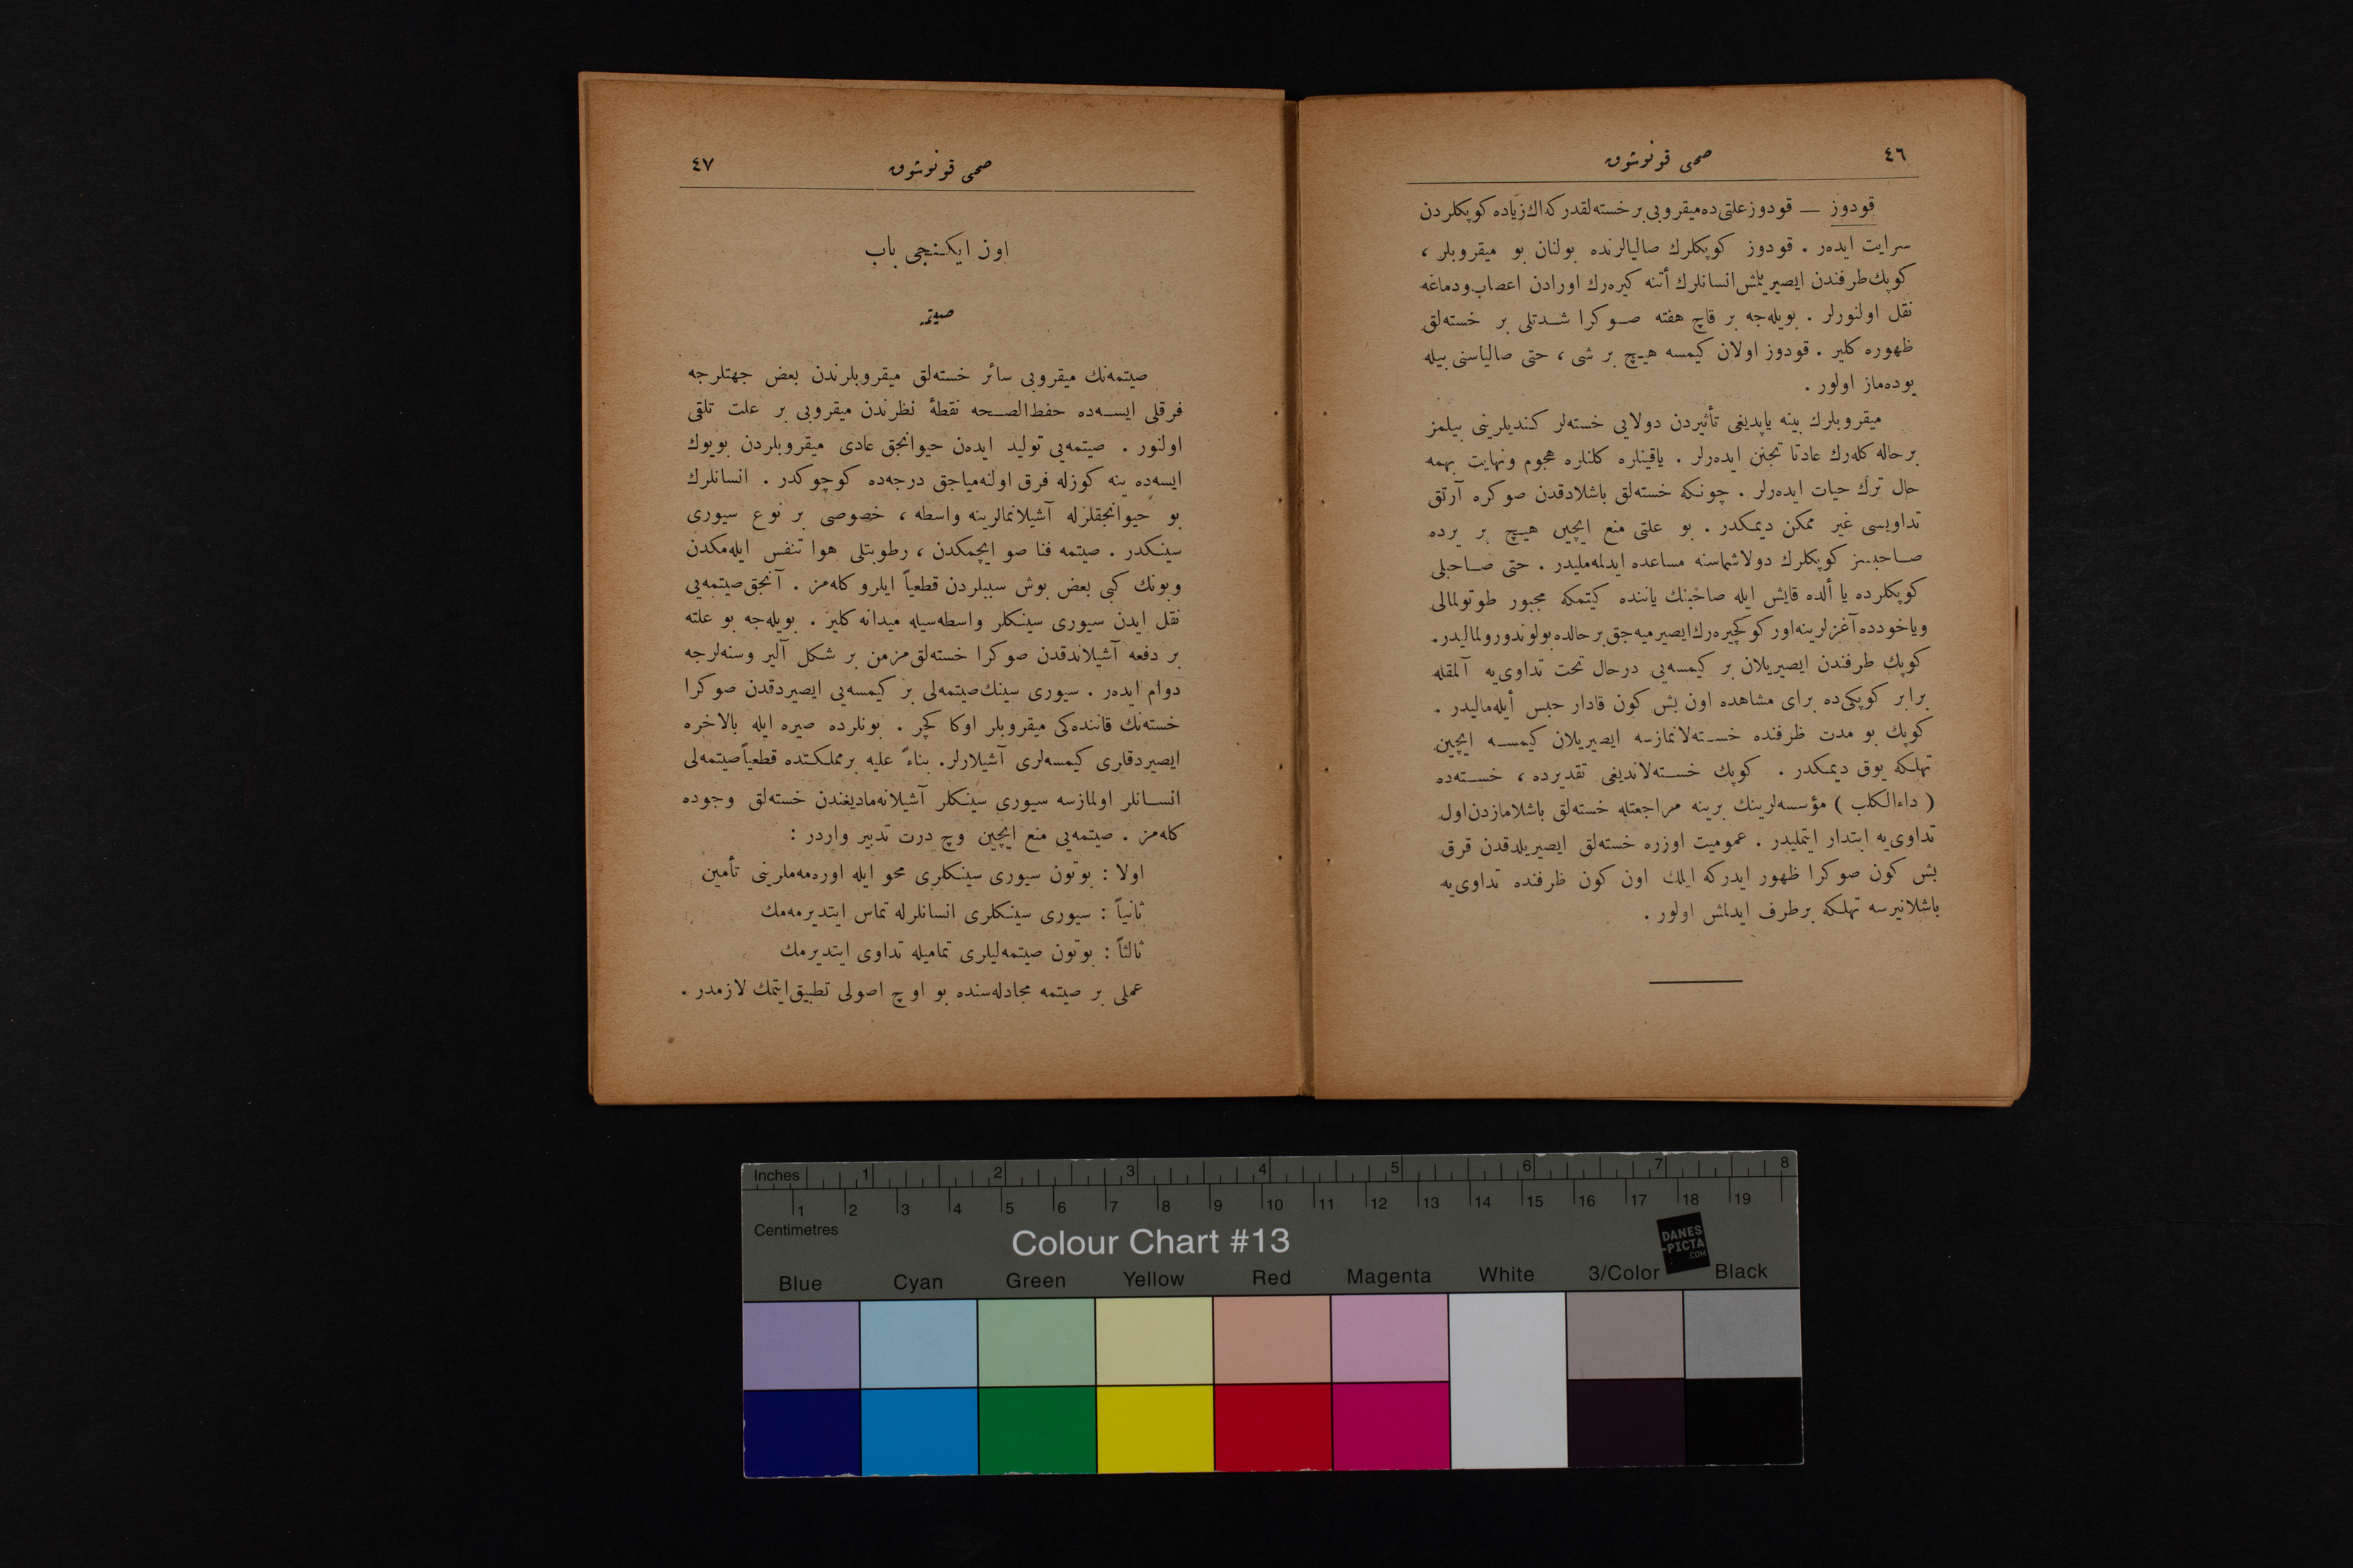 ٤٦
صحی قونوشوق
قودوز — قودوز علتی ده میقروبی بر خسته‌لقدر که اك زیاده كوپكلردن
سرایت ایدەر . قودوز كوپكلرك صالیالرنده بولنان بو میقروبلر ،
كوپك طرفندن ایصیریلمش انسانلرك أتنه كیره‌رك اورادن اعصاب ودماغه
نقل اولنورلر . بویله‌جه بر قاچ هفته صوكرا شدتلی بر خسته‌لق
ظهوره كلیر . قودوز اولان كیمسه هیچ بر شی ، حتی صالیاسنی بیله
یوده‌ماز اولور .
میقروبلرك بینه یاپدیغی تأثیردن دولایی خسته‌لر كندیلرینی بیلمز
برحاله كله‌رك عادتا تجنن ایدەرلر . یاقینلره كلنلره هجوم ونهایت بهمه
حال ترك حیات ایدەرلر . چونكه خسته‌لق باشلادقدن صوكره آرتق
تداویسی غیر ممكن دیمكدر . بو علتی منع ایچین هیچ بر یرده
صاحبسز كوپكلرك دولاشماسنه مساعده ایدلمه‌ملیدر . حتی صاحبلی
كوپكلرده یا ألده قایش ایله صاحبنك یاننده كیتمكه مجبور طوتولمالی
ویاخودده آغزلرینه اوركو كچیره‌رك ایصیرمیه‌جق برحالده بولوندورولمالیدر.
كوپك طرفندن ایصیریلان بر كیمسه‌یی درحال تحت تداوی‌یه آلمقله
برابر كوپكی‌ده برای مشاهده اون بش كون قادار حبس أیله‌مالیدر .
كوپك بو مدت ظرفنده خسته‌لانمازسه ایصیریلان كیمسه ایچین
تهلكه یوق دیمكدر . كوپك خسته‌لاندیغی تقدیرده ، خسته‌ده
( داءالكلب ) مؤسسه‌لرینك برینه مراجعتله خسته‌لق باشلامازدن اول
تداوی‌یه ابتدار ایتملیدر . عمومیت اوزره خسته‌لق ایصیریلدقدن قرق
بش كون صوكرا ظهور ایدركه ایلك اون كون ظرفنده تداوی‌یه
باشلانیرسه تهلكه برطرف ایدلمش اولور .
٤٧
صحی قونوشوق
اون ایكنجی باب
صیتمه
صیتمه‌نك میقروبی سائر خسته‌لق میقروبلرندن بعض جهتلرجه
فرقلی ایسه‌ده حفظ‌الصحه نقطهٔ نظرندن میقروبی بر علت تلقی
اولنور . صیتمه‌یی تولید ایدەن حیوانجق عادی میقروبلردن بویوك
ایسه‌ده ینه كوزله فرق اولنه‌میاجق درجه‌ده كوچوكدر . انسانلرك
بو حیوانجقلرله آشیلانمالرینه واسطه ، خصوصی بر نوع سیوری
سینكدر . صیتمه فنا صو ایچمكدن ، رطوبتلی هوا تنفس ایله‌مكدن
وبونك كبی بعض بوش سببلردن قطعیاً ایلرو كله‌مز . آنجق صیتمه‌یی
نقل ایدن سیوری سینكلر واسطه‌سیله میدانه كلیر . بویله‌جه بو علته
بر دفعه آشیلاندقدن صوكرا خسته‌لق مزمن بر شكل آلیر وسنه‌لرجه
دوام ایدەر . سیوری سینك صیتمه‌لی بر كیمسه‌یی ایصیردقدن صوكرا
خسته‌نك قاننده‌كی میقروبلر اوكا كچر . بونلرده صیره ایله بالاخره
ایصیردقلری كیمسه‌لری آشیلارلر. بناءً علیه برمملكتده قطعیاً صیتمه‌لی
انسانلر اولمازسه سیوری سینكلر آشیلانه‌مادیغندن خسته‌لق وجوده
كله‌مز . صیتمه‌یی منع ایچین وچ درت تدبیر واردر :
اولا : بوتون سیوری سینكلری محو ایله اوره‌مه‌ملرینی تأمین
ثانیاً : سیوری سینكلری انسانلرله تماس ایتدیرمه‌مك
ثالثاً : بوتون صیتمه‌لیلری تمامیله تداوی ایتدیرمك
عملی بر صیتمه مجادله‌سنده بو اوچ اصولی تطبیق ایتمك لازمدر .
Inches 1 2 3 4 5 6 7 8
1 2 3 4 5 6 7 8 9 10 11 12 13 14 15 16 17 18 19
Centimetres
Colour Chart #13
DANES
-PICTA
.COM
Blue Cyan Green Yellow Red Magenta White 3/Color Black